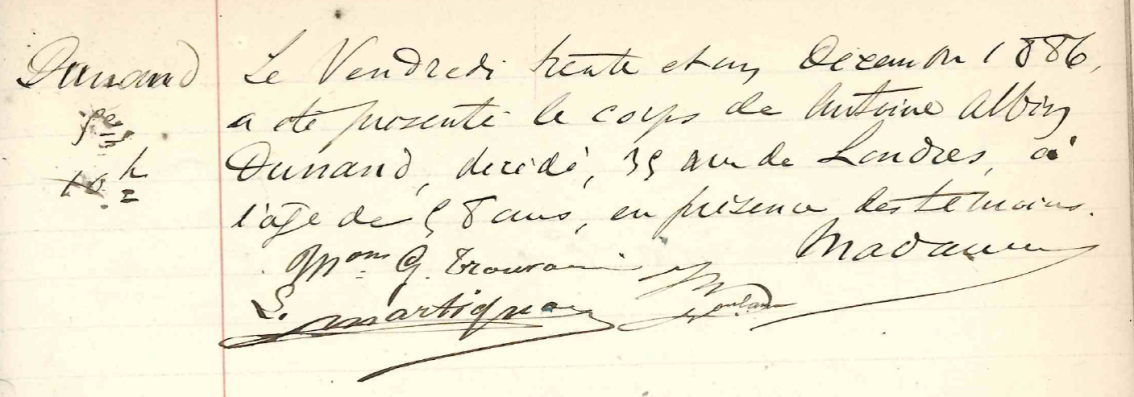 Dunand
10 h
Le Vendredi trente et un Décembre 1886,
a été présenté le corps de Antoine Albin
Dunand, décédé, 35 rue de Londres, à
l'âge de 58 ans, en présence des témoins.
Madame
Mons G.
S. Martignon